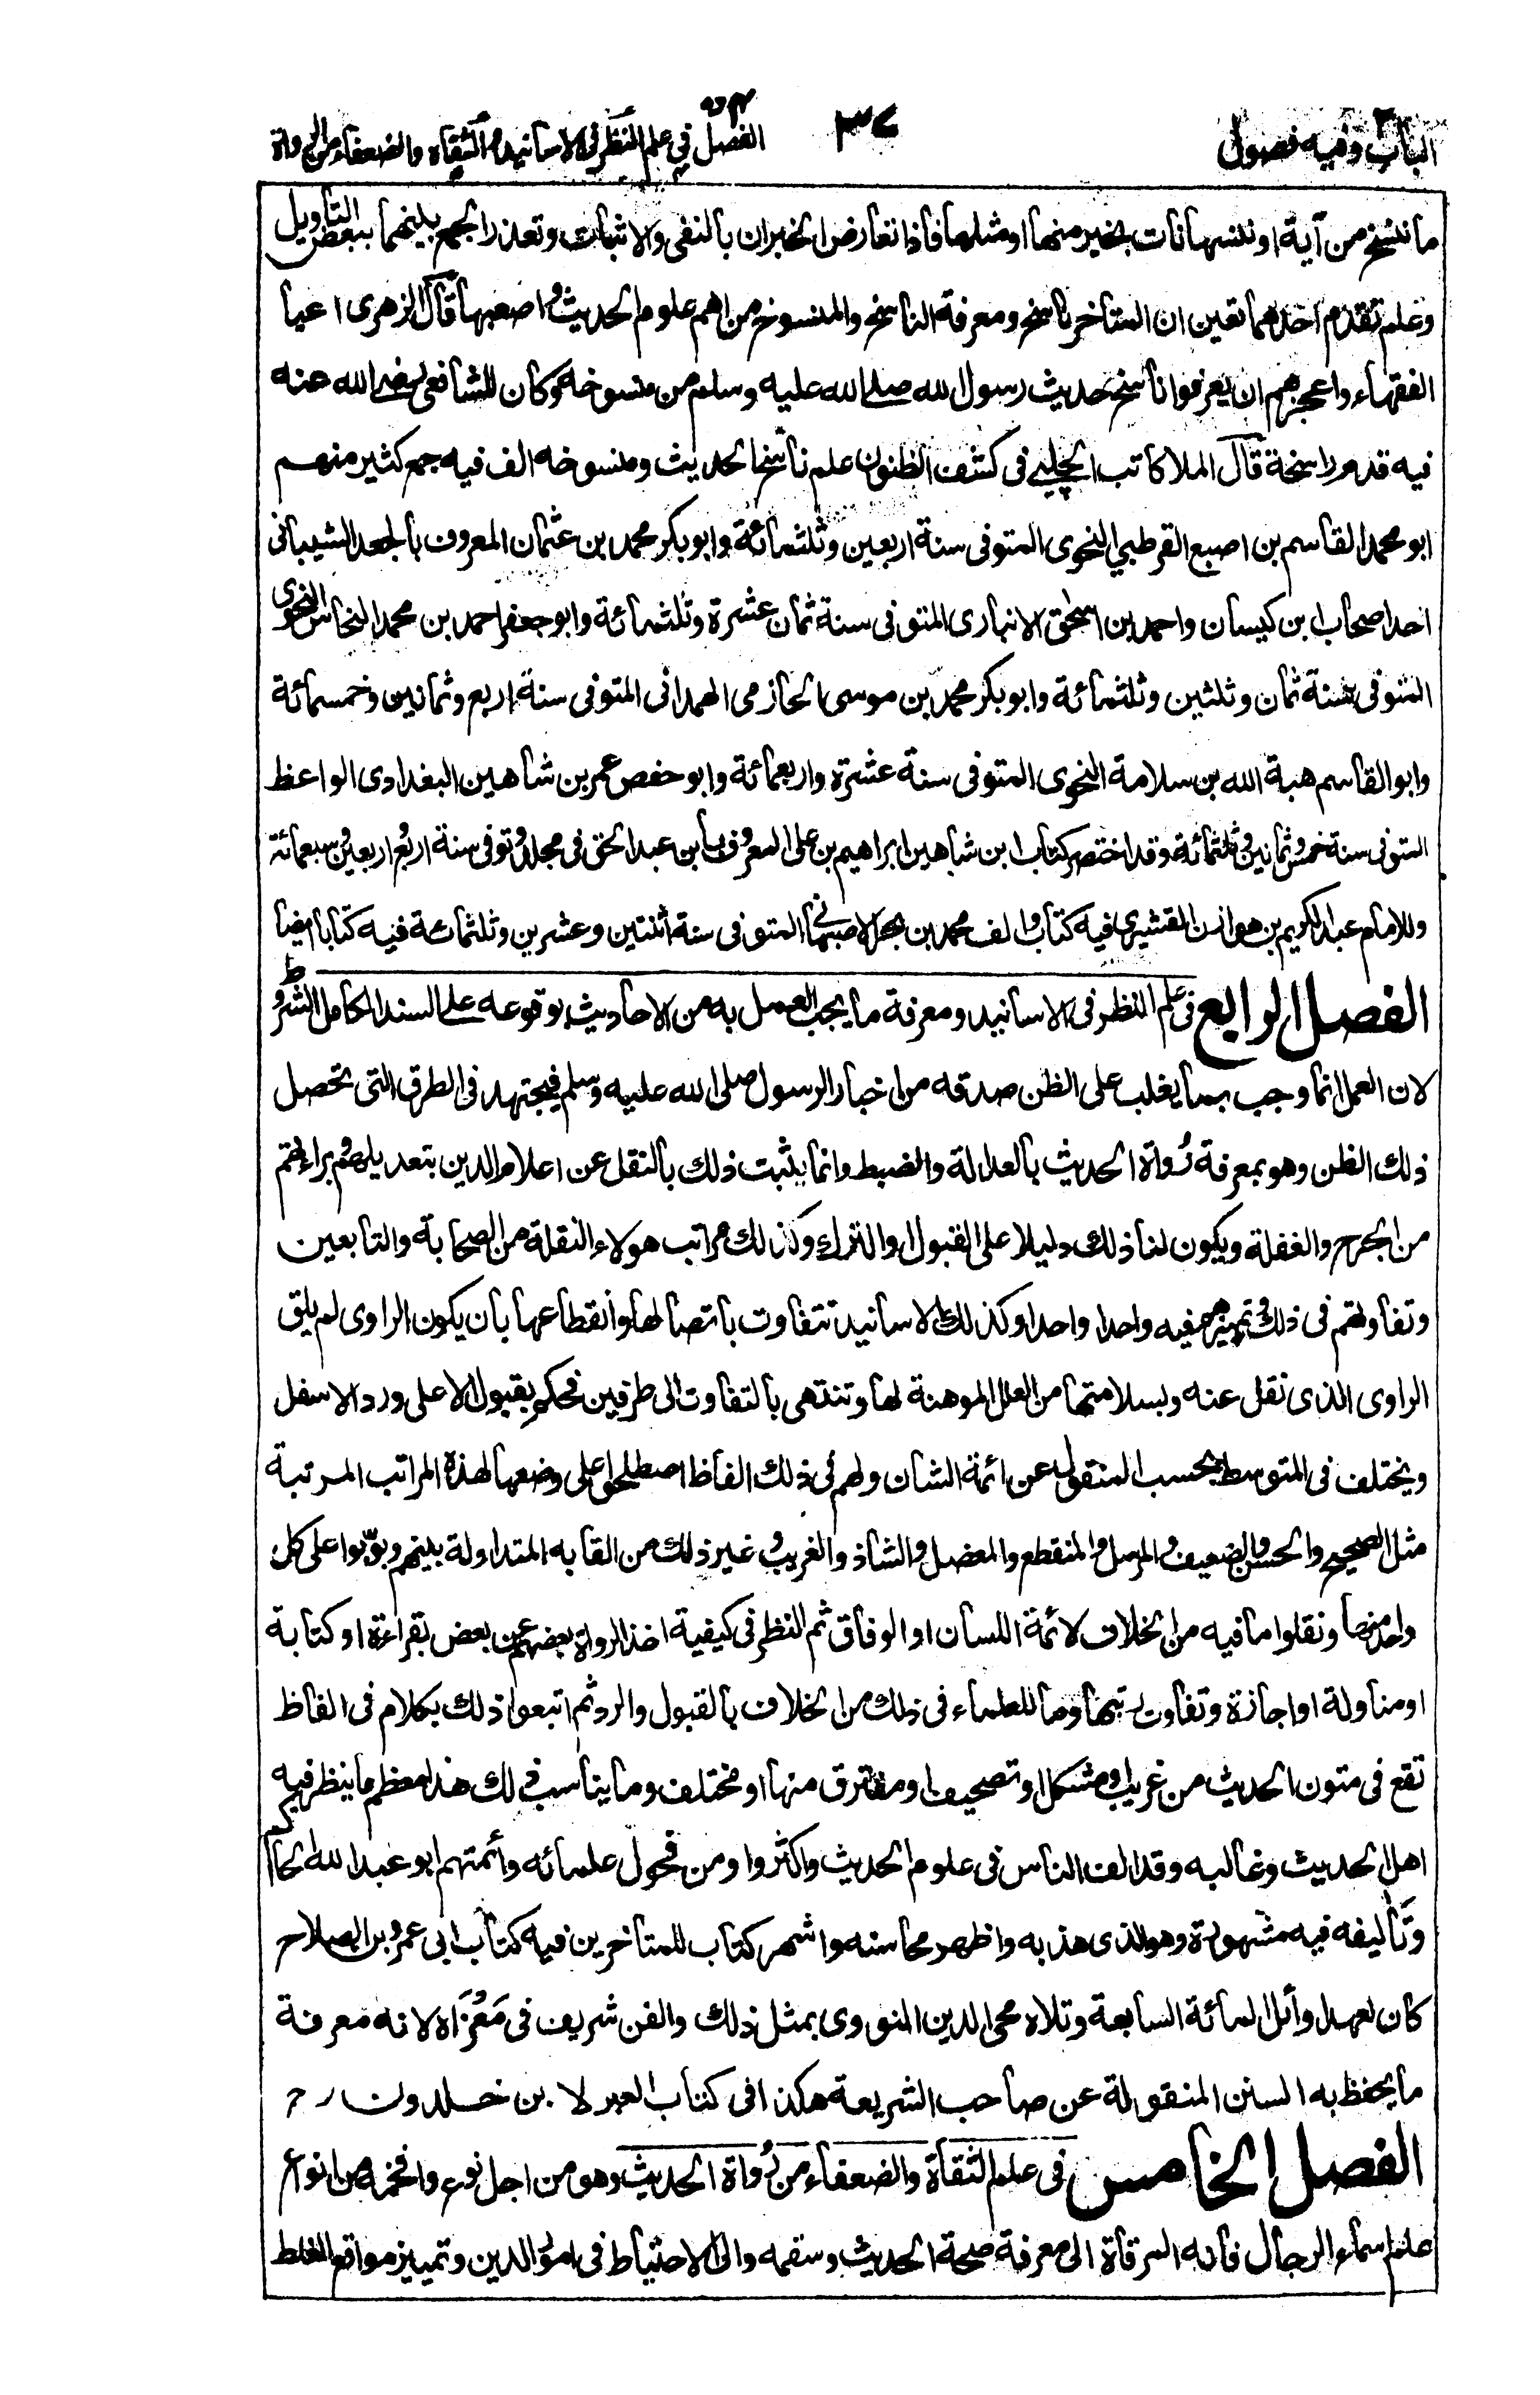 الباب ٢ وفيه فصول
٣٧
الفصل ٤ و ٥ في علم النظر في الاسانيد والثقاة والضعفاء من الرواة
ما ننسخ من آية او ننسها نات بخير منها او مثلها فاذا تعارض الخبران بالنفي والاثبات وتعذر الجمع بينهما ببعض التاويل
وعلم تقدم احدهما تعين ان المتأخر ناسخ ومعرفة الناسخ والمنسوخ من اهم علوم الحديث و اصعبها قال الزهرى اعيا
الفقهاء واعجزهم ان يعرفوا ناسخ حديث رسول الله صلى الله عليه وسلم من منسوخه وكان للشافعى رضى الله عنه
فيه قدم راسخة قال الملا كاتب الچلپى فى كشف الظنون علم ناسخ الحديث ومنسوخه الف فيه جمع كثير منهم
ابو محمد القاسم بن اصبع القرطبي النحوى المتوفى سنة اربعين وثلثمائة وابو بكر محمد بن عثمان المعروف بالجعد الشيبانى
احد اصحاب ابن كيسان واحمد بن اسحٰق الانبارى المتوفى سنة ثمان عشرة وثلثمائة وابو جعفر احمد بن محمد النحاس النحوى
المتوفى سنة ثمان وثلثين وثلثمائة وابو بكر محمد بن موسى الحازمى الهمدانى المتوفى سنة اربع وثمانين وخمسمائة
وابو القاسم هبة الله بن سلامة النحوى المتوفى سنة عشرة واربعمائة وابو حفص عمر بن شاهين البغدادى الواعظ
المتوفى سنة خمس وثمانين وثلثمائة وقد اختصر كتاب ابن شاهين ابراهيم بن على المعروف بابن عبد الحق فى مجلد وتوفى سنة اربع واربعين سبعمائة
وللامام عبد الكريم بن هوازن القشيرى فيه كتاب والف محمد بن بحر الاصبهانى المتوفى سنة اثنتين وعشرين وثلثمائة فيه كتابا ايضا
الفصل الرابع فى علم النظر فى الاسانيد ومعرفة ما يجب العمل به من الاحاديث بوقوعه على السند الكامل الشروط
لان العمل انما وجب بما يغلب على الظن صدقه من اخبار الرسول صلى الله عليه وسلم فيجتهد فى الطرق التى تحصل
ذلك الظن وهو بمعرفة رُواة الحديث بالعدالة والضبط وانما يثبت ذلك بالنقل عن اعلام الدين بتعديلهم وبراءتهم
من الجرح والغفلة ويكون لنا ذلك دليلا على القبول او الترك وكذلك مراتب هولاء النقلة من الصحابة والتابعين
وتفاوتهم فى ذلك وتميزهم فيه واحدا واحدا وكذلك الاسانيد تتفاوت باتصالها وانقطاعها بان يكون الراوى لم يلق
الراوى الذى نقل عنه وبسلامتها من العلل الموهنة لها وتنتهى بالتفاوت الى طرفين فحكم بقبول الاعلى ورد الاسفل
ويختلف فى المتوسط بحسب المنقول عن ائمة الشان ولهم فى ذلك الفاظ اصطلحوا على وضعها لهذه المراتب المرتبة
مثل الصحيح والحسن والضعيف والمرسل والمنقطع والمعضل والشاذ والغريب و غير ذلك من القابه المتداولة بينهم وبوّبوا على كل
واحد منها ونقلوا ما فيه من الخلاف لائمة اللسان او الوفاق ثم النظر فى كيفية اخذ الرواة بعضهم عن بعض بقراءة او كتابة
او مناولة او اجازة وتفاوت رتبها وما للعلماء فى ذلك من الخلاف بالقبول والرد ثم اتبعوا ذلك بكلام فى الفاظ
تقع فى متون الحديث من غريب او مشكل او تصحيف او مفترق منها او مختلف وما يناسب ذلك هذا معظم ما ينظر فيه
اهل الحديث وغالبه وقد الف الناس فى علوم الحديث واكثروا ومن فحول علمائه وأئمتهم ابو عبد الله الحاكم
وتأليفه فيه مشهورة وهو الذى هذبه واظهر محاسنه واشهر كتاب للمتاخرين فيه كتاب ابى عمرو بن الصلاح
كان لعهد اوائل المائة السابعة وتلاه محى الدين النووى بمثل ذلك والفن شريف فى مَغْزَاه لانه معرفة
ما يحفظ به السنن المنقولة عن صاحب الشريعة هكذا فى كتاب العبر لابن خلدون رح
الفصل الخامس فى علم الثقاة والضعفاء من رُواة الحديث وهو من اجل نوع وافخمه من انواع
علم اسماء الرجال فانه المرقاة الى معرفة صحة الحديث وسقمه والى الاحتياط فى امور الدين وتمييز مواقع الغلط